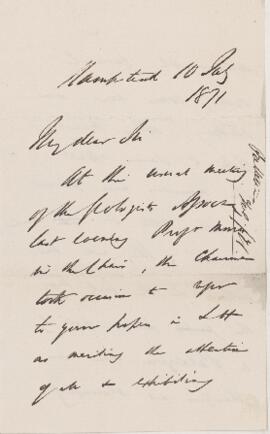 Hampstead 10 July
1871
My dear Sir
At the usual meeting
of the Geologists Assocn
last evening Profr Morris
in the Chair, the Chairman
took occasion to refer
to your paper in
as meriting the attention
of all & exhibiting